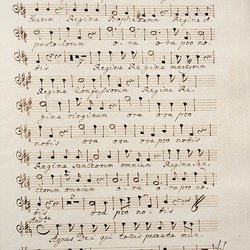 tharum Regina Prophetarum Regina A
postolorum ora ora pro no
bis Regina Regina martyrum
Regina Confessorum Regina Re
gina virginum ora ora pro
nobis ora ora pro nobis
Regina Sanctorum omnium Regina San
ctorum omnium ora ora pro no
bis ora pro nobis
Agnus Dei qui tollis peccata mun